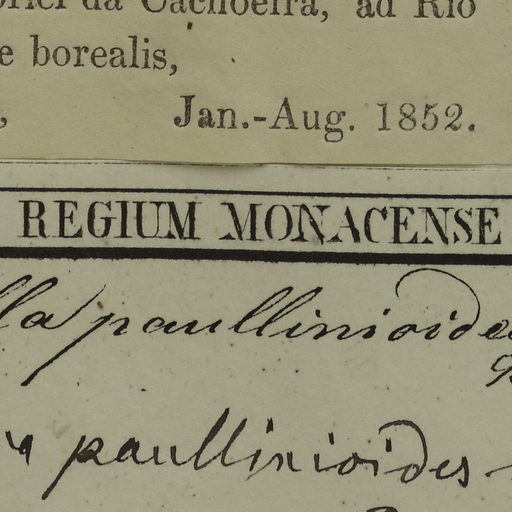 da Cachoeira, ad Rio
e borealis,
Jan.-Aug. 1852.
REGIUM MONACENSE
lla paullinioides
paullinioides